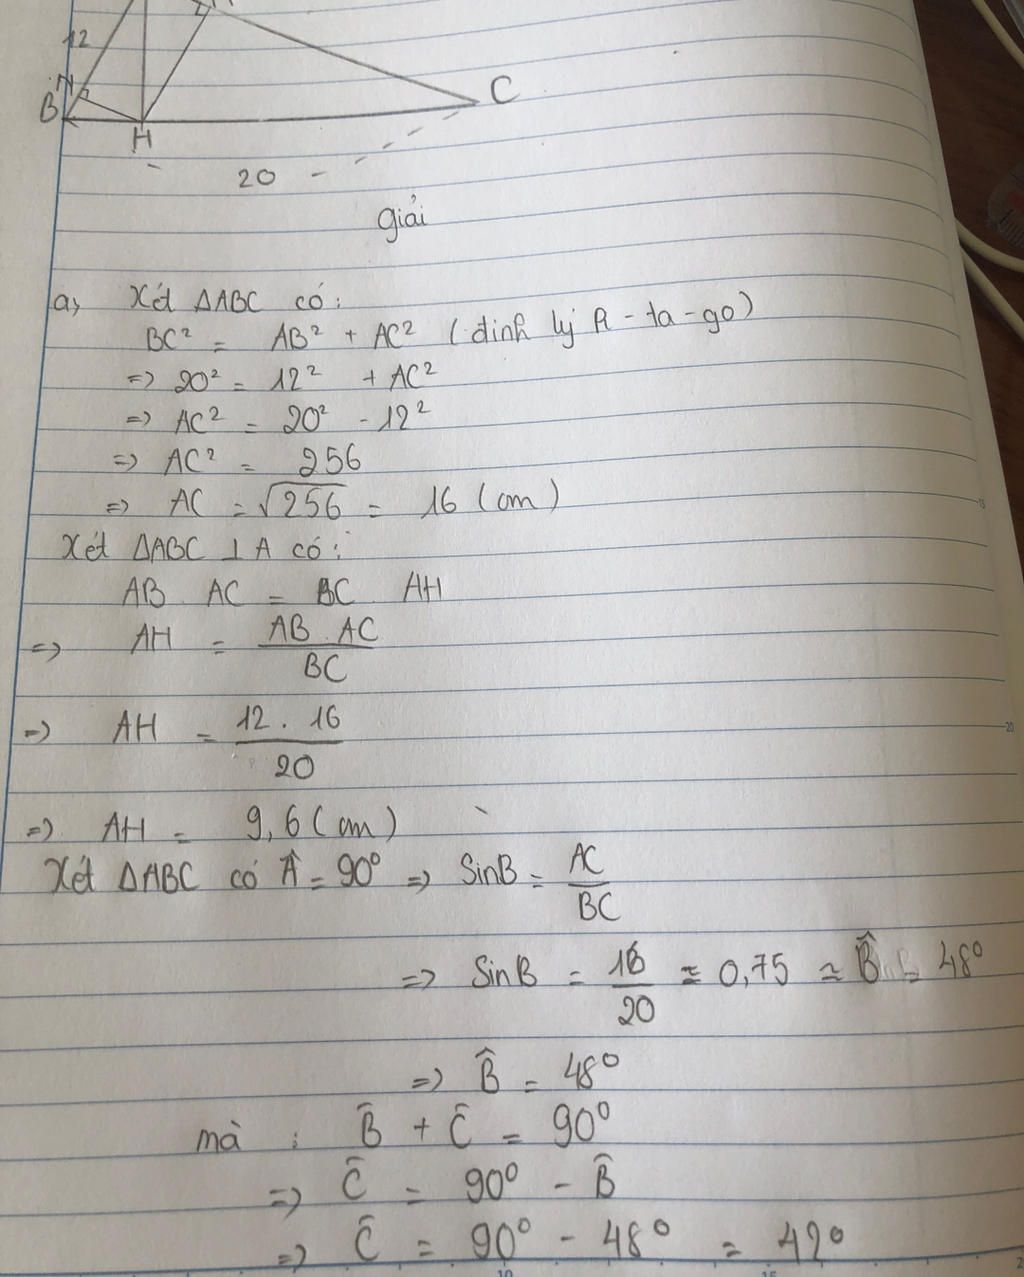 12
N
B
H
C
20
giải
a, Xét ΔABC có:
BC² = AB² + AC² (định lý Pi-ta-go)
=> 20² = 12² + AC²
=> AC² = 20² - 12²
=> AC² = 256
=> AC = √256 = 16 (cm)
Xét ΔABC ⊥ A có:
AB . AC = BC AH
=> AH = AB . AC / BC
=> AH = 12 . 16 / 20
=> AH = 9,6 (cm)
Xét ΔABC có Â = 90° => SinB = AC / BC
=> SinB = 16 / 20 ≈ 0,75 ≃ B̂ = 48°
=> B̂ = 48°
mà : B̂ + Ĉ = 90°
=> Ĉ = 90° - B̂
=> Ĉ = 90° - 48° = 42°
15
20
10
15